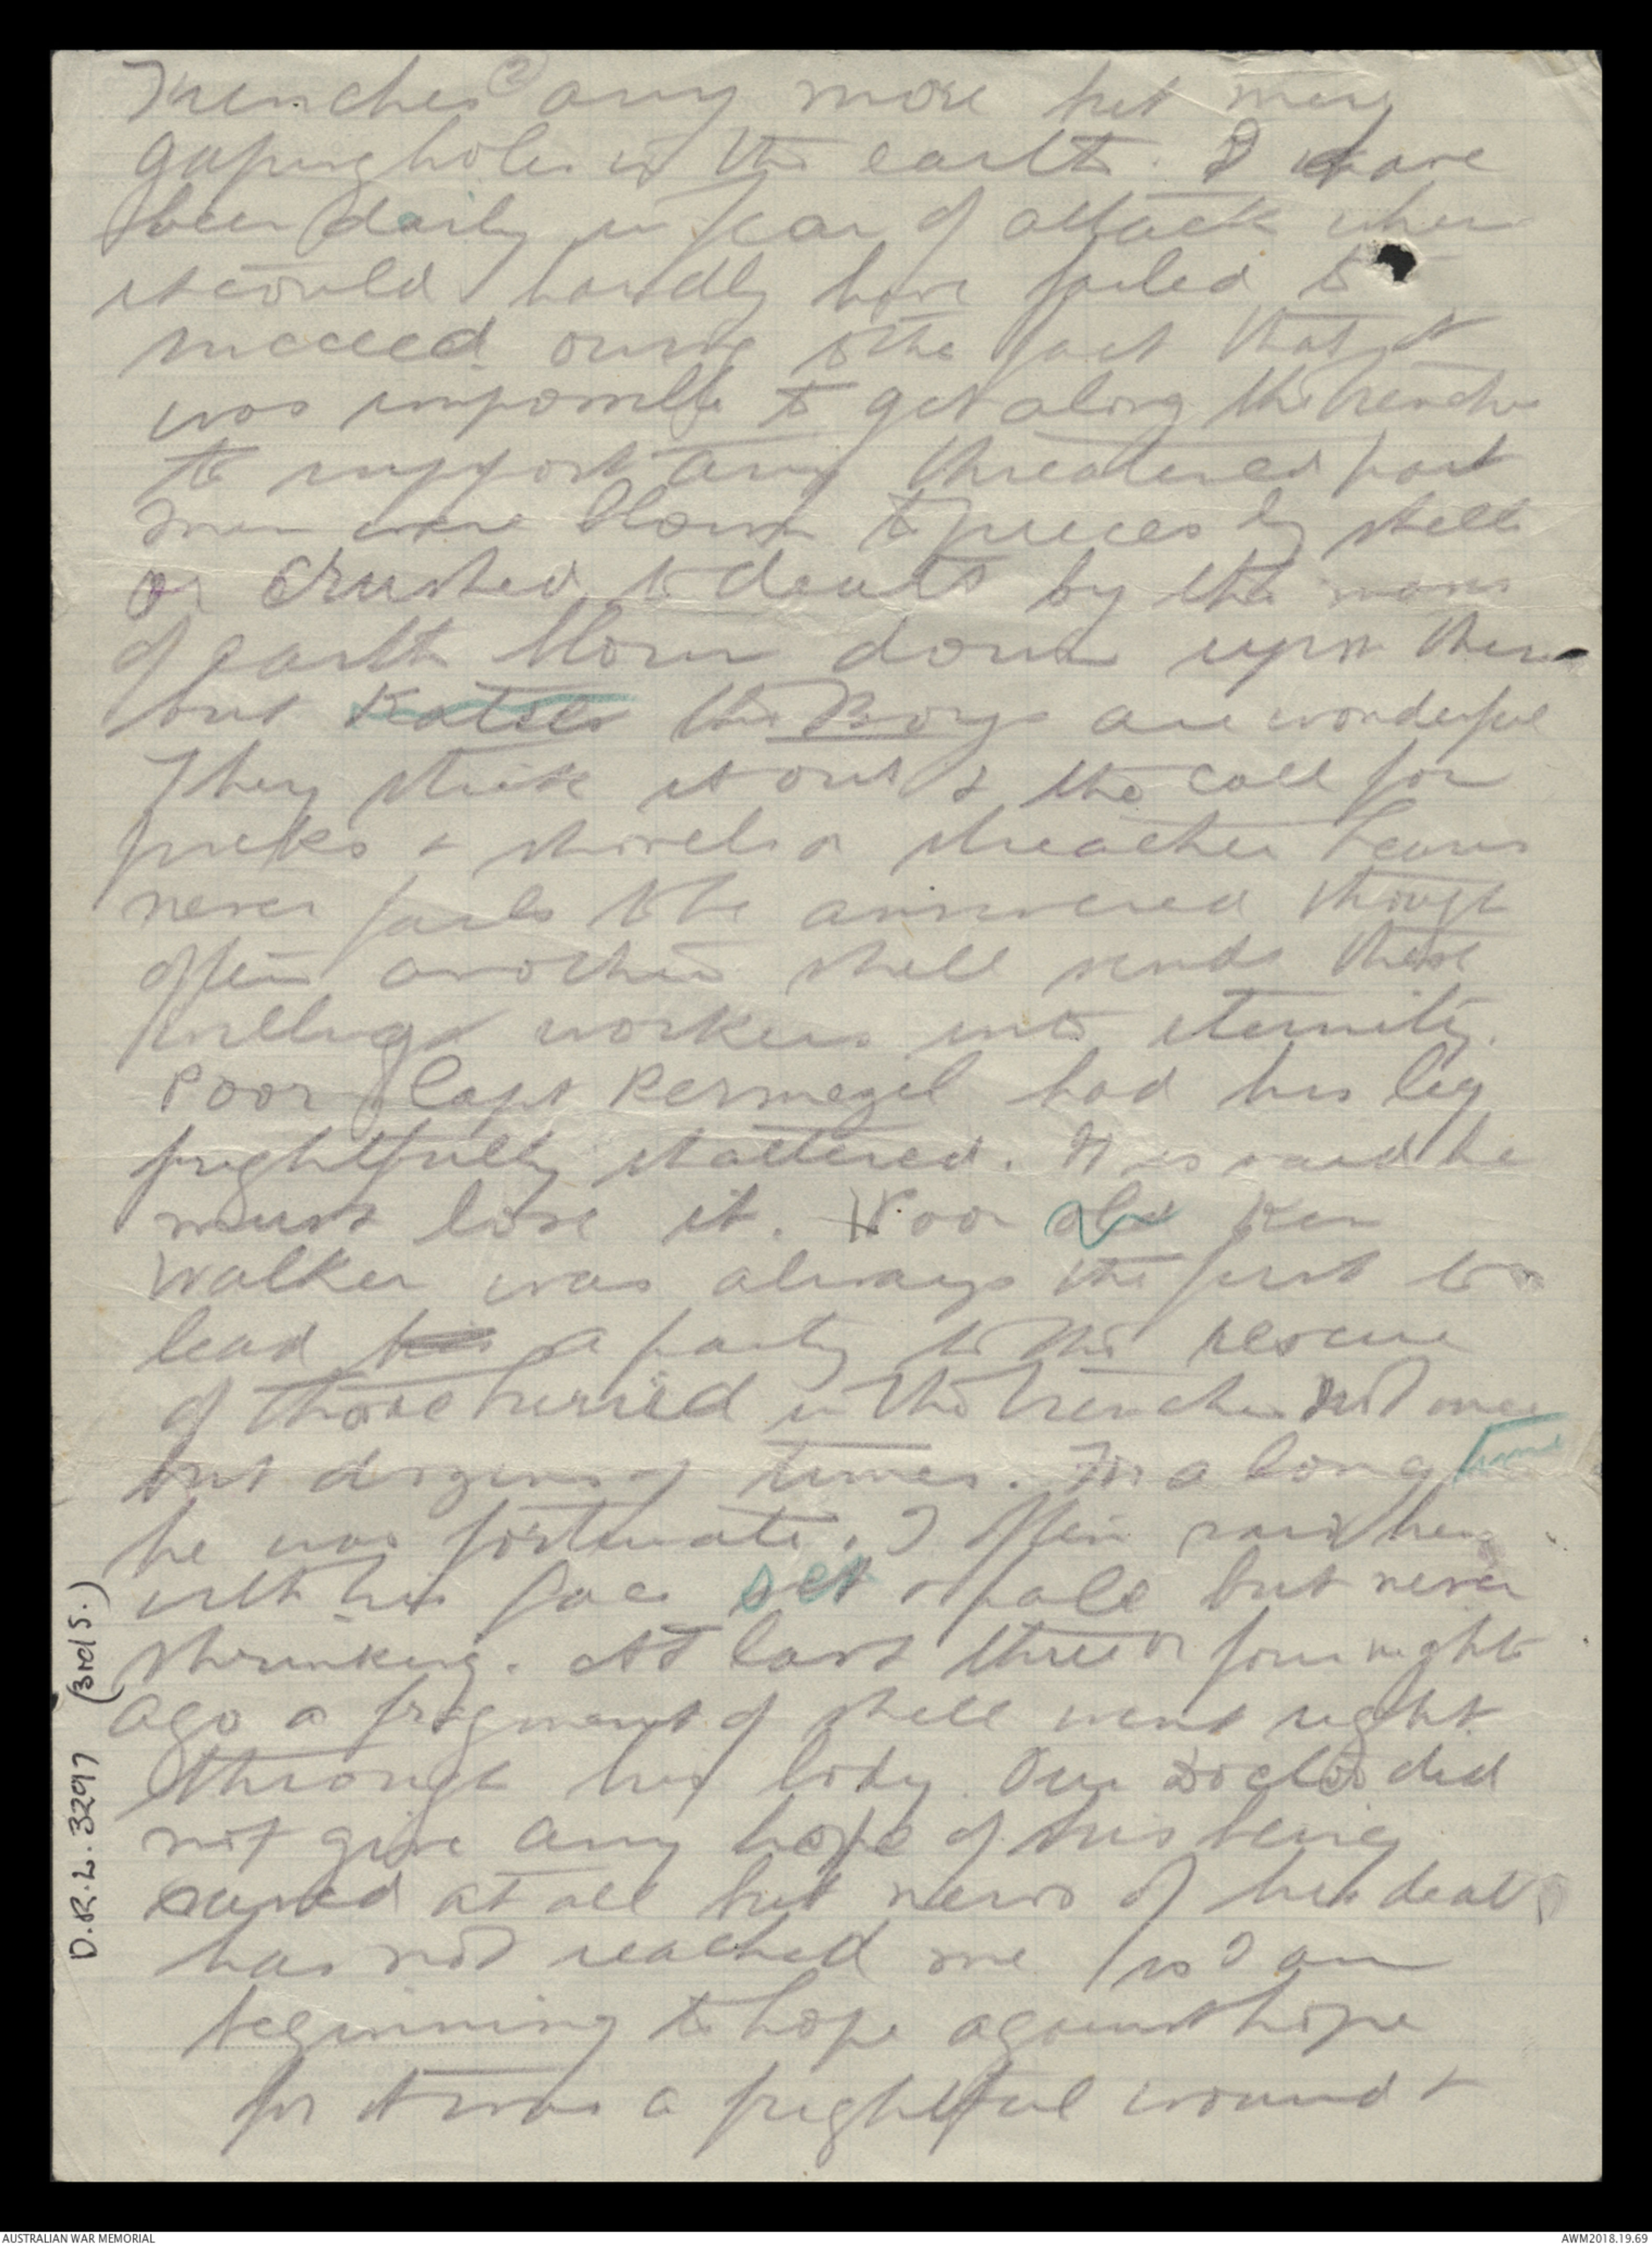 (2)
Trenches any more but mere
gaping holes in the earth. I have
been daily in fear of attack when
it could hardly have failed to
succeed owing to the fact that it
was impossible to get along the trenches
to support any threatened part
men were blown to pieces by shell
or crushed to death by the mass
of earth blown down upon them
but the Boys are wonderful
They stick it out & the call for
picks & shovels or stretcher bearers
never fails to be answered though
often another shell sends these
willing workers into eternity.
Poor Capt had his leg
frightfully shattered. It is said he
must lose it. Poor old Ken
Walker was always the first to
lead a party to the rescue
of those burried in the trenches not once
but dozens of times. For a long time
he was fortunate. I often saw him
with his face set & pale but never
shrinking. At last three or four nights
ago a fragment of shell went right
through his body. Our Doctor did
not give any hope of his being
saved at all but news of his death
has not reached me so I am
beginning to hope against hope
for it was a frightful wound &
D.R.L. 3297 (3rd S.)
AUSTRALIAN WAR MEMORIAL
AWM2018.19.69